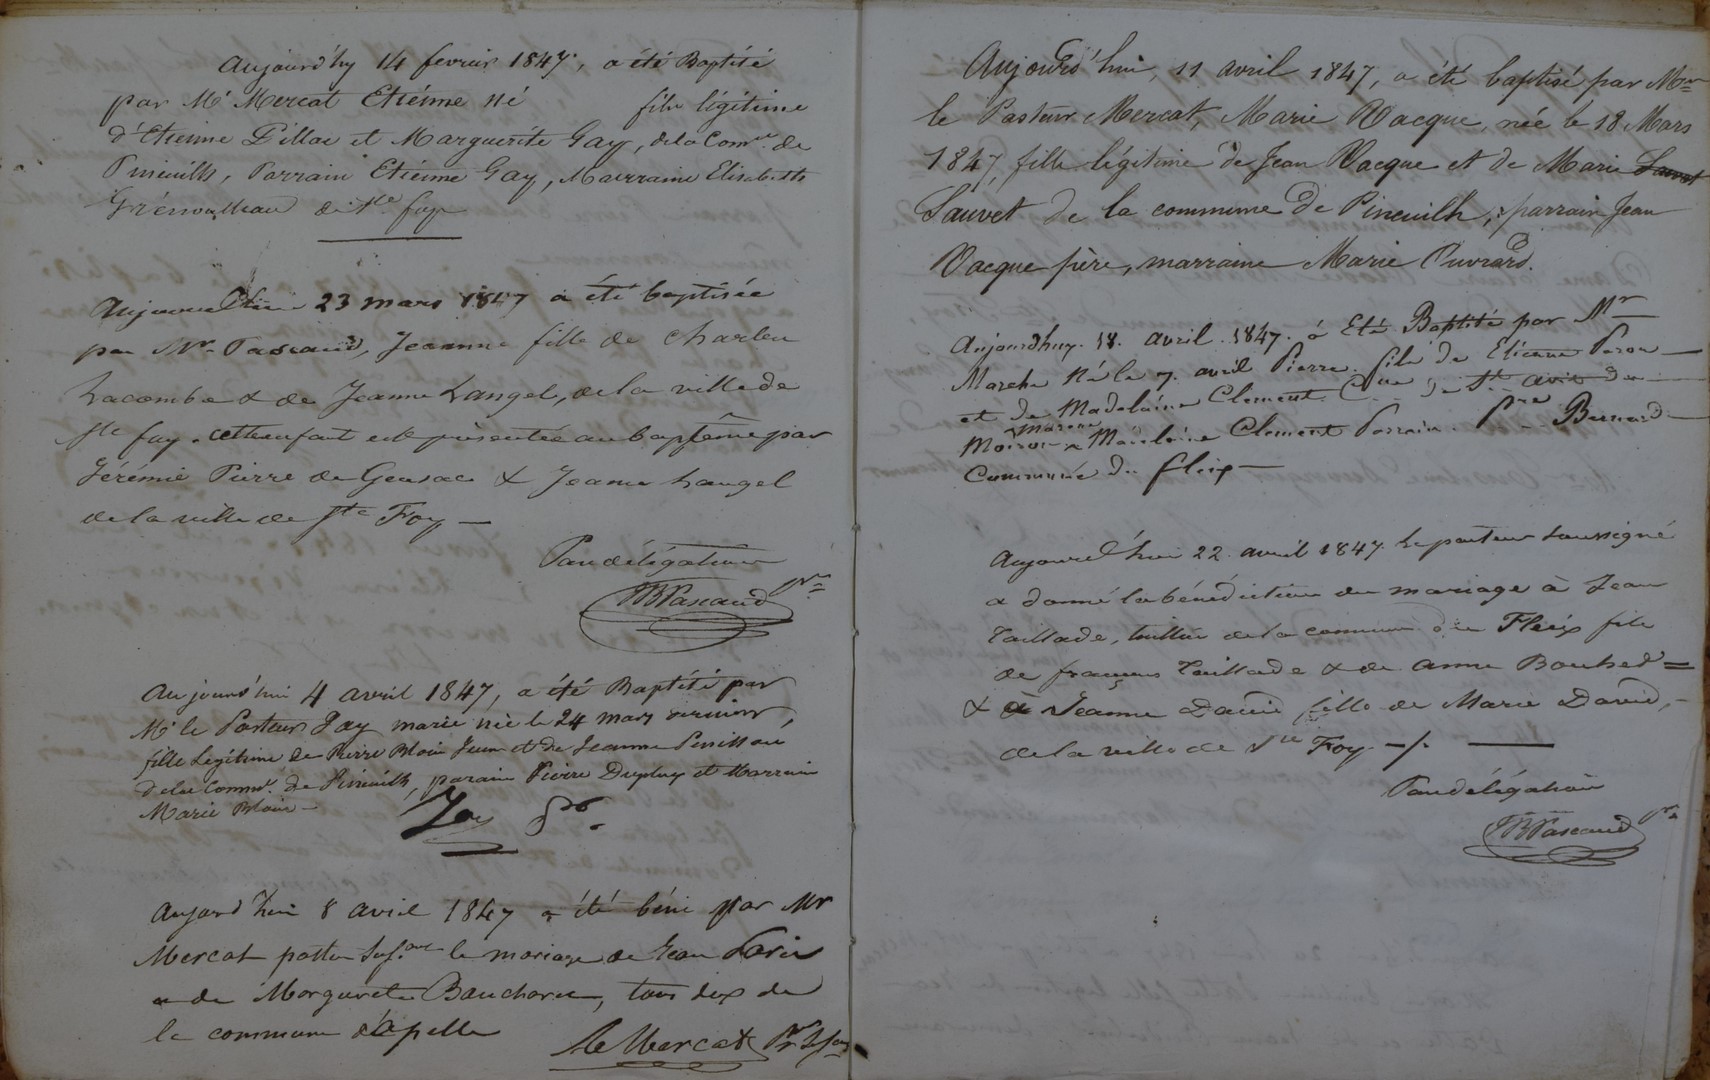 Aujourd'hy 14 fevrier 1847, a été Baptisé
par Mr Mercat Etiénne né fils légitime
d'Etienne Pillac et Marguerite Gay, de la Comne. de
Pineuilh, Parrain Etiénne Gay, Marraine Elisabeth
de Ste foy
Aujourd'hui 23 mars 1847 a été baptisée
par Mr Pascaud, Jeanne fille de Charles
Lacombe & de Jeanne Langel, de la ville de
Ste foy. cette enfant est présentée au baptême par
Jérémie Pierre de Gensac & Jeanne Langel
de la ville de Ste Foy —
Par délégation
JB Pascaud pr
Aujourd'hui 4 avril 1847, a été Baptisé par
Mr le Pasteur Jay marie née le 24 mars dernier,
fille Légitime de Pierre Blois Jeune et de Jeanne
de la Commne. de Pineuilh, parain Pierre Dupuy et Marraine
Marie Blois —
Jay pr.
Aujourd'hui 8 avril 1847 a été béni par Mr
Mercat pasteur suf.ant le mariage de Jean Paris
& de Margurete Baucharee, tous deux de
la commune d'Apelle
A Mercat Pr Sfant
Aujourd'hui, 11 avril 1847, a été baptisé par Mr
le Pasteur Mercat, Marie Vacque, née le 18 Mars
1847, fille légitime de Jean Vacque et de Marie Sauvet
Sauvet de la commune de Pineuilh, parrain Jean
Vacque père, marraine Marie Puvrard.
Aujourdhuy. 18. avril. 1847. á Eté Baptisé par Mr
Marche Né le 7. avril Pierre. fils de Etienne Peron —
et de Madelaine Clement Cne de St avit du —
Moiron & Madelaine Clement Parrain. Pre Bernard —
Commune du fleix —
Aujourd'hui 22 avril 1847 le pasteur soussigné
a donné la bénédiction du mariage à Jean
Taillade, tuillier de la commune du Fleix fils
de françois Taillade & de anne Bouhet =
& à Jeanne David, fille de Marie David, —
de la ville de Ste Foy. —/. ———
Par délégation
JB Pascaud pr